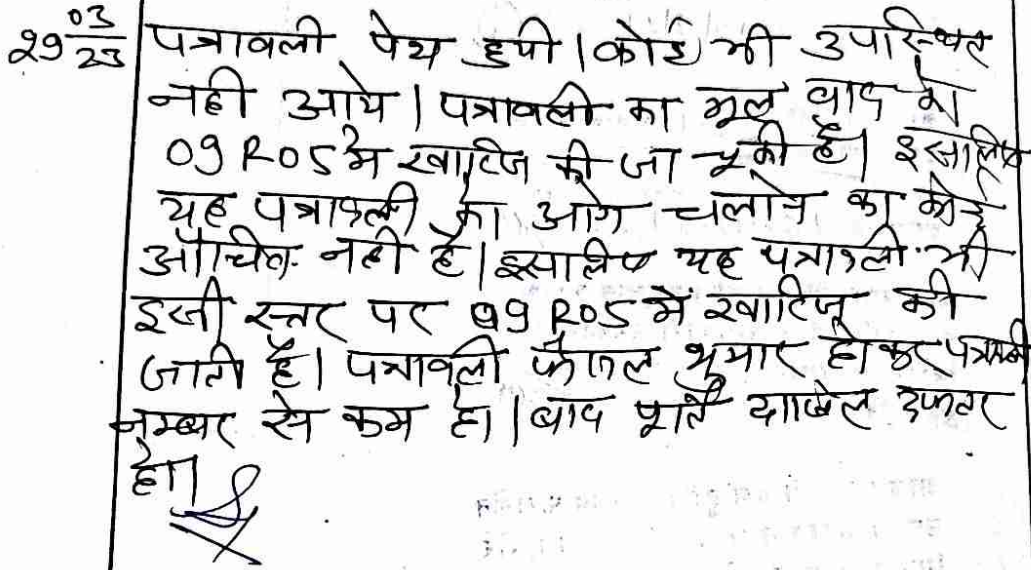 29 03/23 पत्रावली पेश हुयी। कोई भी उपस्थित
नही आये। पत्रावली का मूल वाद को
09 ROS में खारिज की जा चूकी है। इसलिए
यह पत्रावली का आगे चलाने का कोई
औचित नही है। इसलिए यह पत्रावली भी
इसी स्तर पर 09 ROS में खारिज की
जाती है। पत्रावली फैसल शुमार होकर पत्रावली
नम्बर से कम हो। बाद पूर्ति दाखिल दफ्तर
हो।